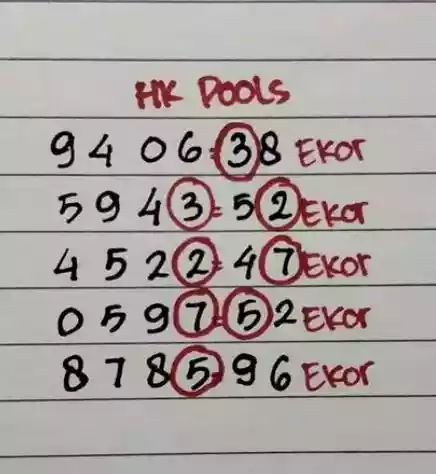 HK POOLS
9406=38 EKOR
5943=52 EKOR
4522=47 EKOR
0597=52 EKOR
8785=96 EKOR